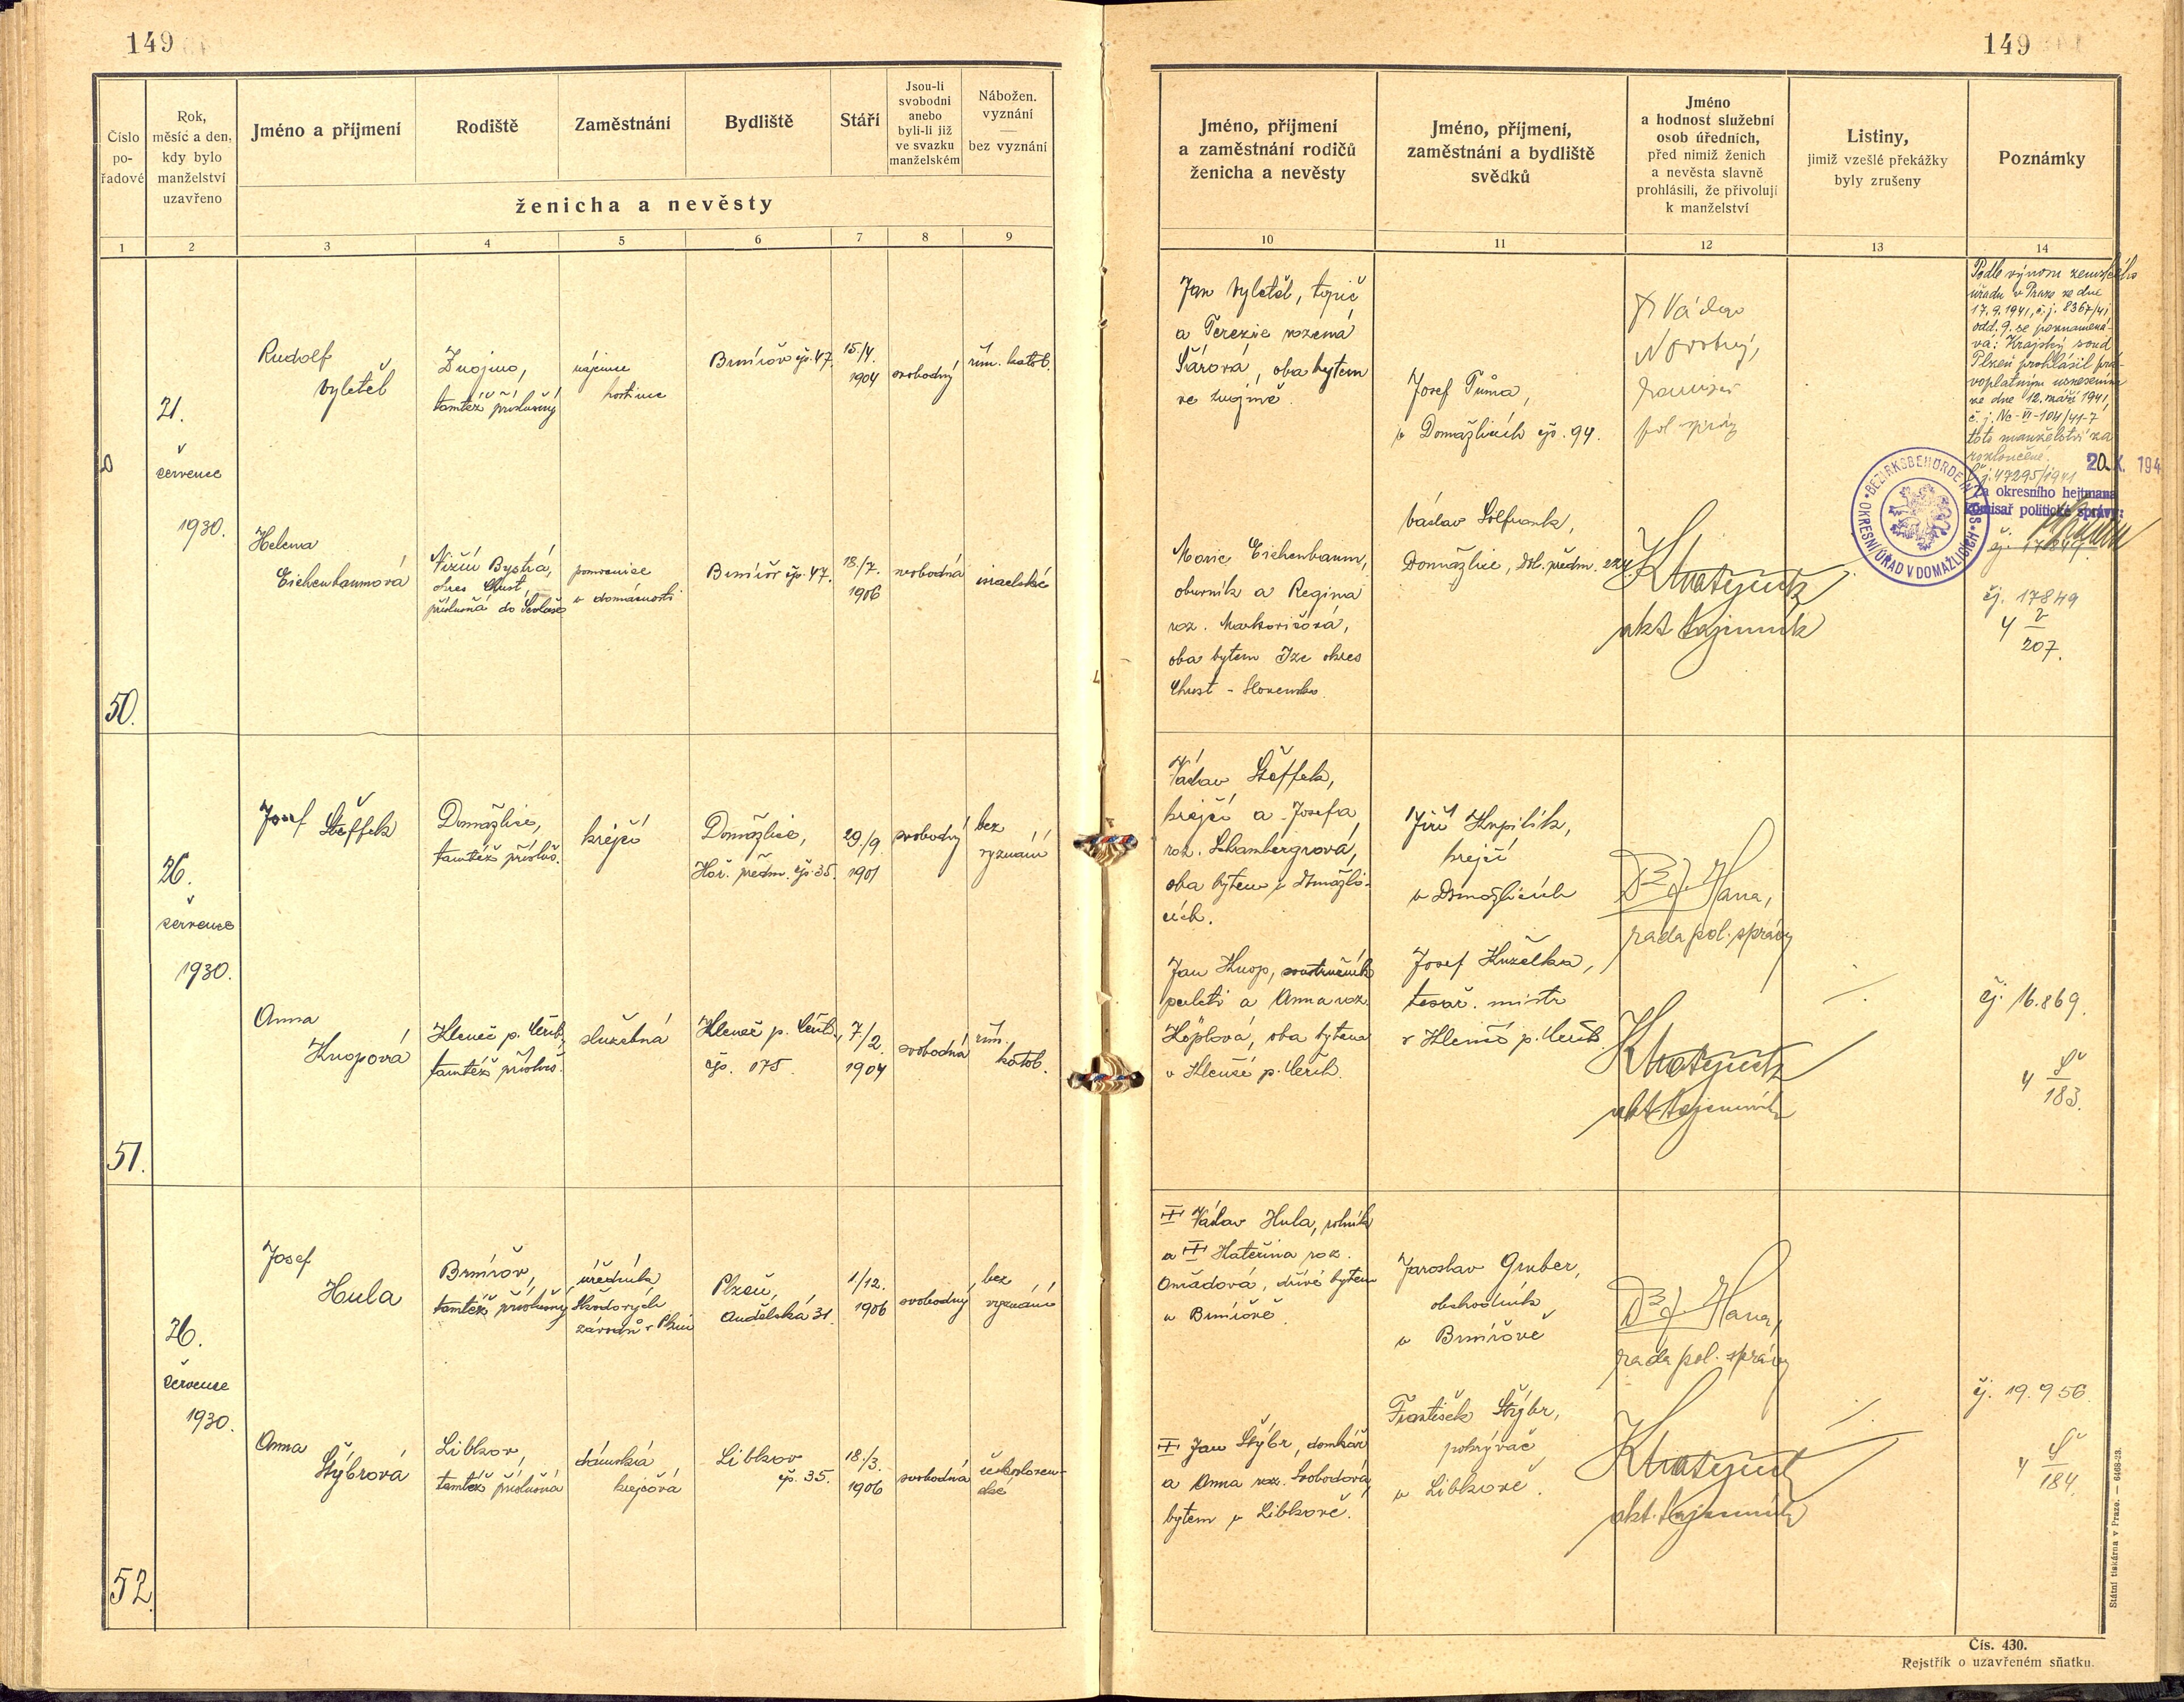 149
149
Číslo
po-
řadové
Rok,
měsíc a den,
kdy bylo
manželství
uzavřeno
Jméno a příjmení
Rodiště
Zaměstnání
Bydliště
Stáří
Jsou-li
svobodni
anebo
byli-li již
ve svazku
manželském
Nábožen.
vyznání
—
bez vyznání
ženicha a nevěsty
1
2
3
4
5
6
7
8
9
Jméno, příjmení
a zaměstnání rodičů
ženicha a nevěsty
Jméno, příjmení,
zaměstnání a bydliště
svědků
Jméno
a hodnost služební
osob úředních,
před nimiž ženich
a nevěsta slavně
prohlásili, že přivolují
k manželství
Listiny,
jimiž vzešlé překážky
byly zrušeny
Poznámky
10
11
12
13
14
50.
21.
července
1930.
Rudolf
Vyletěl
Znojmo,
tamtéž příslušný
nájemce
hostince
Brnířov čp. 47.
15./4.
1904
svobodný
řím. katol.
Helena
Eichenbaumová
Nižní Bystrá,
okres Chust,
příslušná do
pomocnice
v domácnosti
Brnířov čp. 47.
18./7.
1906
svobodná
israelské
Jan Vyletěl, topič
a Terezie rozená
Šárová, oba bytem
ve Znojmě.
Moric Eichenbaum,
obuvník a Regina
roz. Markovičová,
oba bytem Ize okres
Chust - Slovensko.
Josef Tůma,
v Domažlicích čp. 94.
Václav
Domažlice, Dol. předm.
Novotný,
komisař
pol. správy
Kratejnctz
akt. tajemník
Podle výnosu zemského
úřadu v Praze ze dne
17.9.1941, č.j. 8367/41
odd. 9. se poznamená-
vá: Krajský soud
Plzeň prohlásil pra-
voplatným usnesením
ze dne 12. září 1941,
č.j. Nc-VI-104/41-7
toto manželství za
rozloučené.
č.j. 47295/1941
20. X. 194
Za okresního hejtmana
komisař politické správy:
BEZIRKSBEHÖRDE IN TAUS
OKRESNÍ ÚŘAD V DOMAŽLICÍCH
čj. 17849
čj. 17849
4 V
207.
51.
26.
července
1930.
Josef Šteffek
Domažlice,
tamtéž přísluš.
krejčí
Domažlice,
Hoř. předm. čp. 35.
29./9
1901
svobodný
bez
vyznání
Anna
Knopová
Klenčí p. Čerch.
tamtéž přísluš.
služebná
Klenčí p. Čerch.
čp. 175.
7./2.
1904
svobodná
řím.
katol.
Václav Šteffek,
krejčí a Josefa
roz. Schambergrová,
oba bytem v Domažli-
cích.
Jan Knop, soustružník
perleti a Anna roz.
Köplová, oba bytem
v Klenčí p. Čerch.
Jiří Kupilík,
krejčí
v Domažlicích
Josef Kuželka,
tesař. mistr
v Klenčí p. Čerch.
Dr J. Hana,
rada pol. správy
akt. tajemník
čj. 16.869.
4 Š
183.
52.
26.
července
1930.
Josef
Hula
Brnířov,
tamtéž příslušný
úředník
Škodových
závodů v Plzni
Plzeň,
Andělská 31.
1./12.
1906
svobodný
bez
vyznání
Anna
Štýbrová
Libkov,
tamtéž příslušná
dámská
krejčová
Libkov
čp. 35.
18./3.
1906
svobodná
českosloven-
ské
Václav Hula, rolník
a Kateřina roz.
Ouřadová, dříve bytem
v Brnířově.
Jan Štýbr, domkář
a Anna roz. Svobodová
bytem v Libkově.
Jaroslav Gruber,
obchodník
v Brnířově
František Štýbr,
pokrývač
v Libkově.
Dr J. Hana,
rada pol. správy
akt. tajemník
čj. 19.956
4 Š
184.
Státní tiskárna v Praze. — 6468-23.
Čís. 430.
Rejstřík o uzavřeném sňatku.